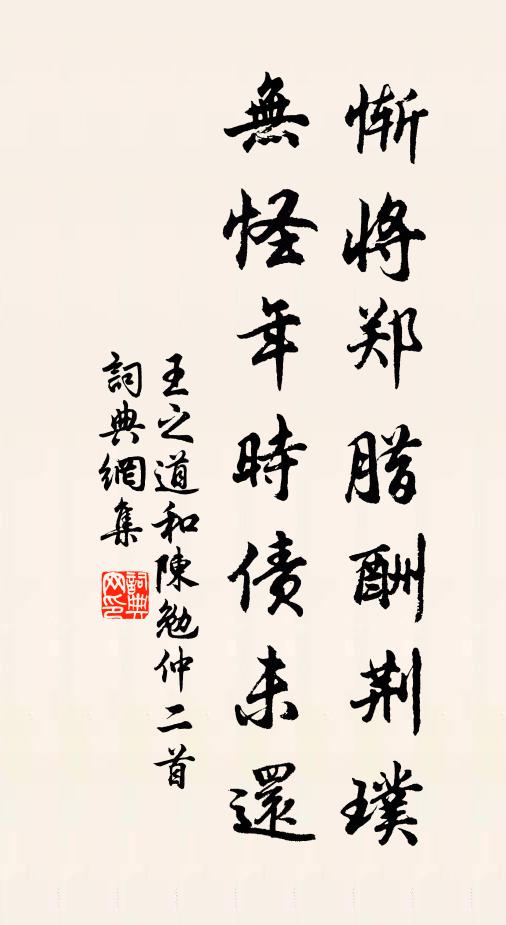 惭将郑腊酬荆璞
無怪年時债未還
王之道和陳勉仲二首
詞典網集
詞典网印